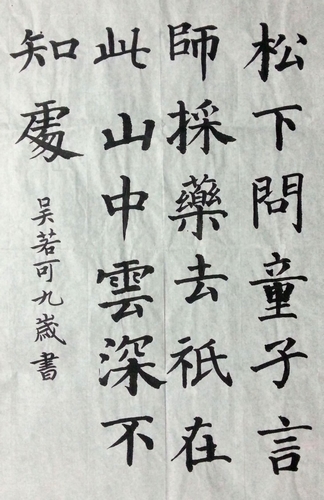 松下問童子言
師採藥去祇在
此山中雲深不
知處
吴若可九歲書